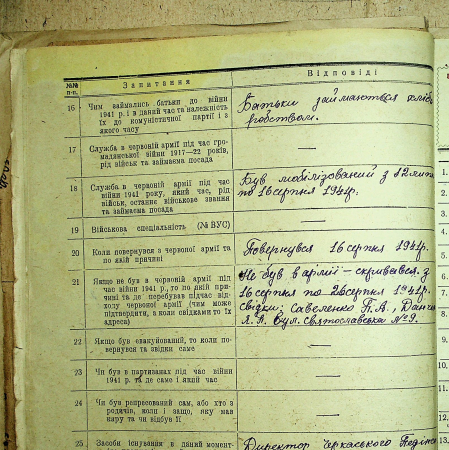 №№ п-п. Запитання Відповіді
16 Чим займались батьки до війни
1941 р. і в даний час та належність
їх до комуністичної партії і з
якого часу
Батьки займаються хліб
робством.
17 Служба в червоній армії під час гро-
мадянської війни 1917—22 років,
рід військ та займаєма посада
—
18 Служба в червоній армії під час
війни 1941 року, який час, рід
військ, останнє військове звання
та займаєма посада
Був мобілізований з 12
по 16 серпня 1941 р.
19 Військова спеціальність (№ ВУС)
—
20 Коли повернувся з червоної армії та
по якій причині
Повернувся 16 серпня 1941 р.
21 Якщо не був в червоній армії під
час війни 1941 р., то по якій при-
чині та де перебував підчас від-
ходу червоної армії (чим може
підтвердити, в коли свідками то їх
адреса)
Не був в армії — скривався з
16 серпня по 26 серпня 1941 р.
свідки: Савеленко П. А.,
Л. П. вул. святославська № 9.
22 Якщо був евакуйований, то коли по-
вернувся та звідки саме
—
23 Чи був в партизанах під час війни
1941 р. та де саме і який час
—
24 Чи був репресований сам, або хто з
родичів, коли і защо, яку мав
кару та чи відбув її
—
25 Засоби існування в даний момент
Директор Черкаського
1.
2.
3.
4.
5.
6.
7.
8.
9.
10.
11.
12.
13.